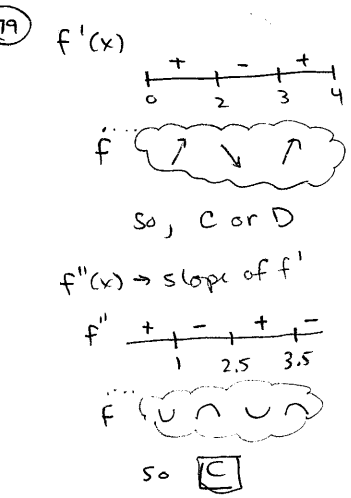 79
f'(x)
+ - +
0 2 3 4
f ↗ ↘ ↗
So, C or D
f"(x) → slope of f'
f" + - + -
1 2.5 3.5
f ∪ ∩ ∪ ∩
so C